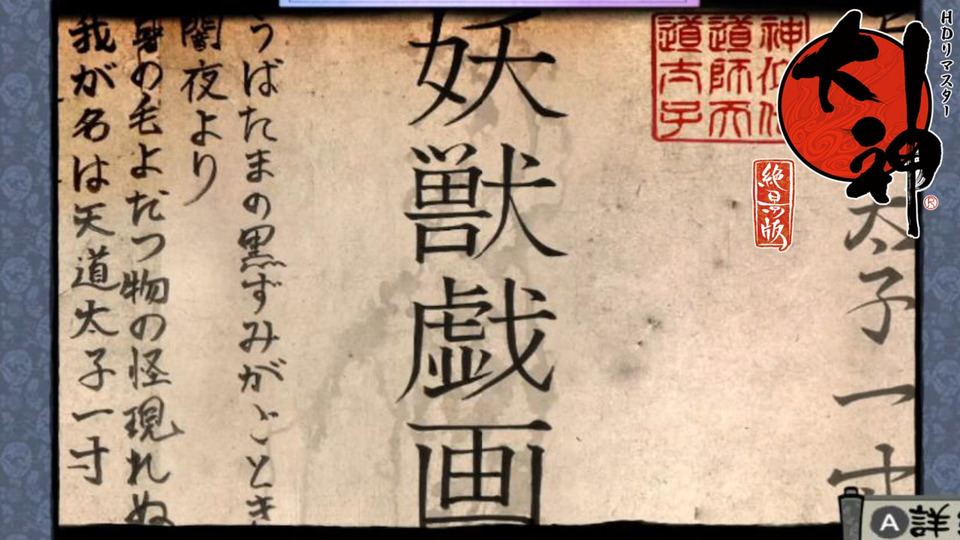 HDリマスター
大神
絶景版
太子一寸
妖獣戯画
うばたまの黒ずみがごとき
闇夜より
身の毛よだつ物の怪現れぬ
我が名は天道太子一寸
A 詳